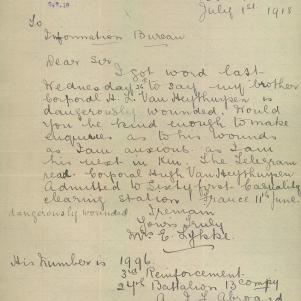 July 1st 1918
To
Information Bureau
Dear Sir
I got word last
Wednesday 26 to say my brother
Corporal H. L. Van Heythuysen is
dangerously wounded. Would
you be kind enough to make
enquiries as to his wounds
as I am anxious as I am
his next in Kin. The Telegram
read Corporal Hugh Van Heythuysen
Admitted to Sixty first Casuality
clearing station France 11th June
dangerously wounded
I remain
Yours Truly
Mrs E. Lykke
His Number is 1996
3rd Reinforcement
24th Battalion 13 Compy
A. I. F. Abroad